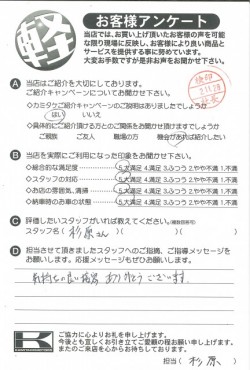 軽
お客様アンケート
当店では、お買上げ頂いたお客様の声を可能
な限り現場に反映し、お客様により良い商品と
サービスを提供する事に努めています。
大変お手数ですが是非お声をお聞かせ下さい。
A 当店はご紹介を大切にしております。
ご紹介キャンペーンについてお聞かせ下さい。
◇カミタケご紹介キャンペーンのご説明はありましたでしょうか
はい いいえ
◇具体的にご紹介頂ける方とのご関係をお聞かせ頂けますでしょうか
ご親族 ご友人 職場の方 機会があれば紹介したい
B 当店を実際にご利用になった印象をお聞かせ下さい。
◇総合的な満足度 5.大満足 4.満足 3.ふつう 2.やや不満 1.不満
◇スタッフの対応 5.大満足 4.満足 3.ふつう 2.やや不満 1.不満
◇お店の雰囲気、清掃 5.大満足 4.満足 3.ふつう 2.やや不満 1.不満
◇納車時のお車の状態 5.大満足 4.満足 3.ふつう 2.やや不満 1.不満
C 評価したいスタッフがいれば教えてください。(複数回答可)
スタッフ名( 杉原さん )
D 担当させて頂きましたスタッフへのご指摘、ご指導メッセージを
お願いします。応援メッセージもぜひお願いします。
気持ちの良い接客 ありがとうございます。
K
ご協力に心よりお礼を申し上げます。
今後とも宜しくお引き立てご愛顧の程お願い申し上げます。
またのご来店を心からお待ちしております。
担当( 杉原 )